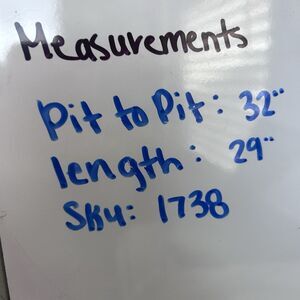 Measurements
Pit to Pit: 32"
length: 29"
Sku: 1738